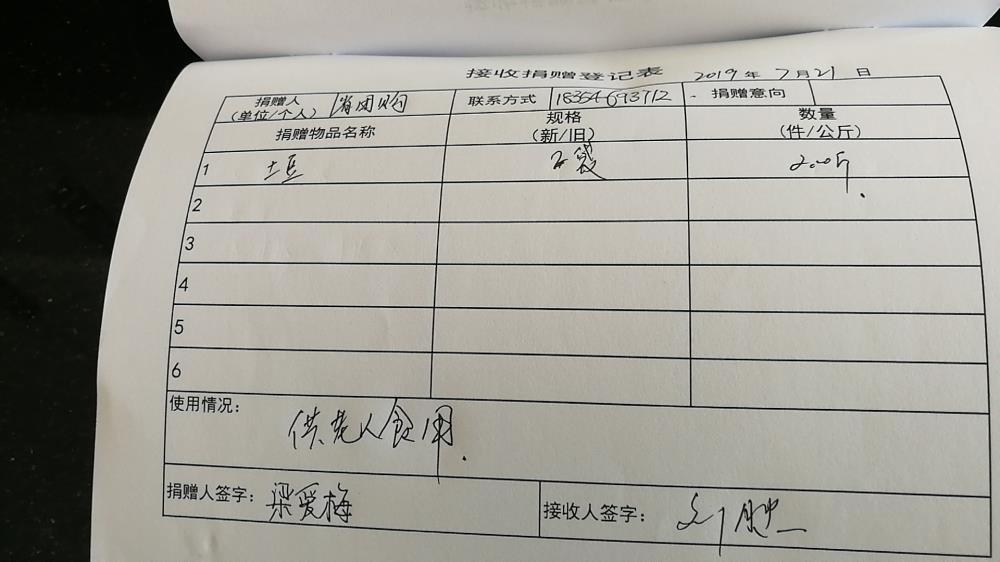 接收捐赠登记表 2019年7月21日
捐赠人(单位/个人) 省团购 联系方式 18354693712 捐赠意向
捐赠物品名称 规格(新/旧) 数量(件/公斤)
1 土豆 200斤
2
3
4
5
6
使用情况:
供老人食用.
捐赠人签字: 梁爱梅 接收人签字: 刘